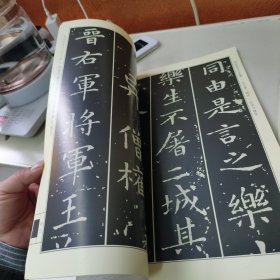 同由是言之樂
樂生不屠二城其
吳僧權
晉右軍將軍王